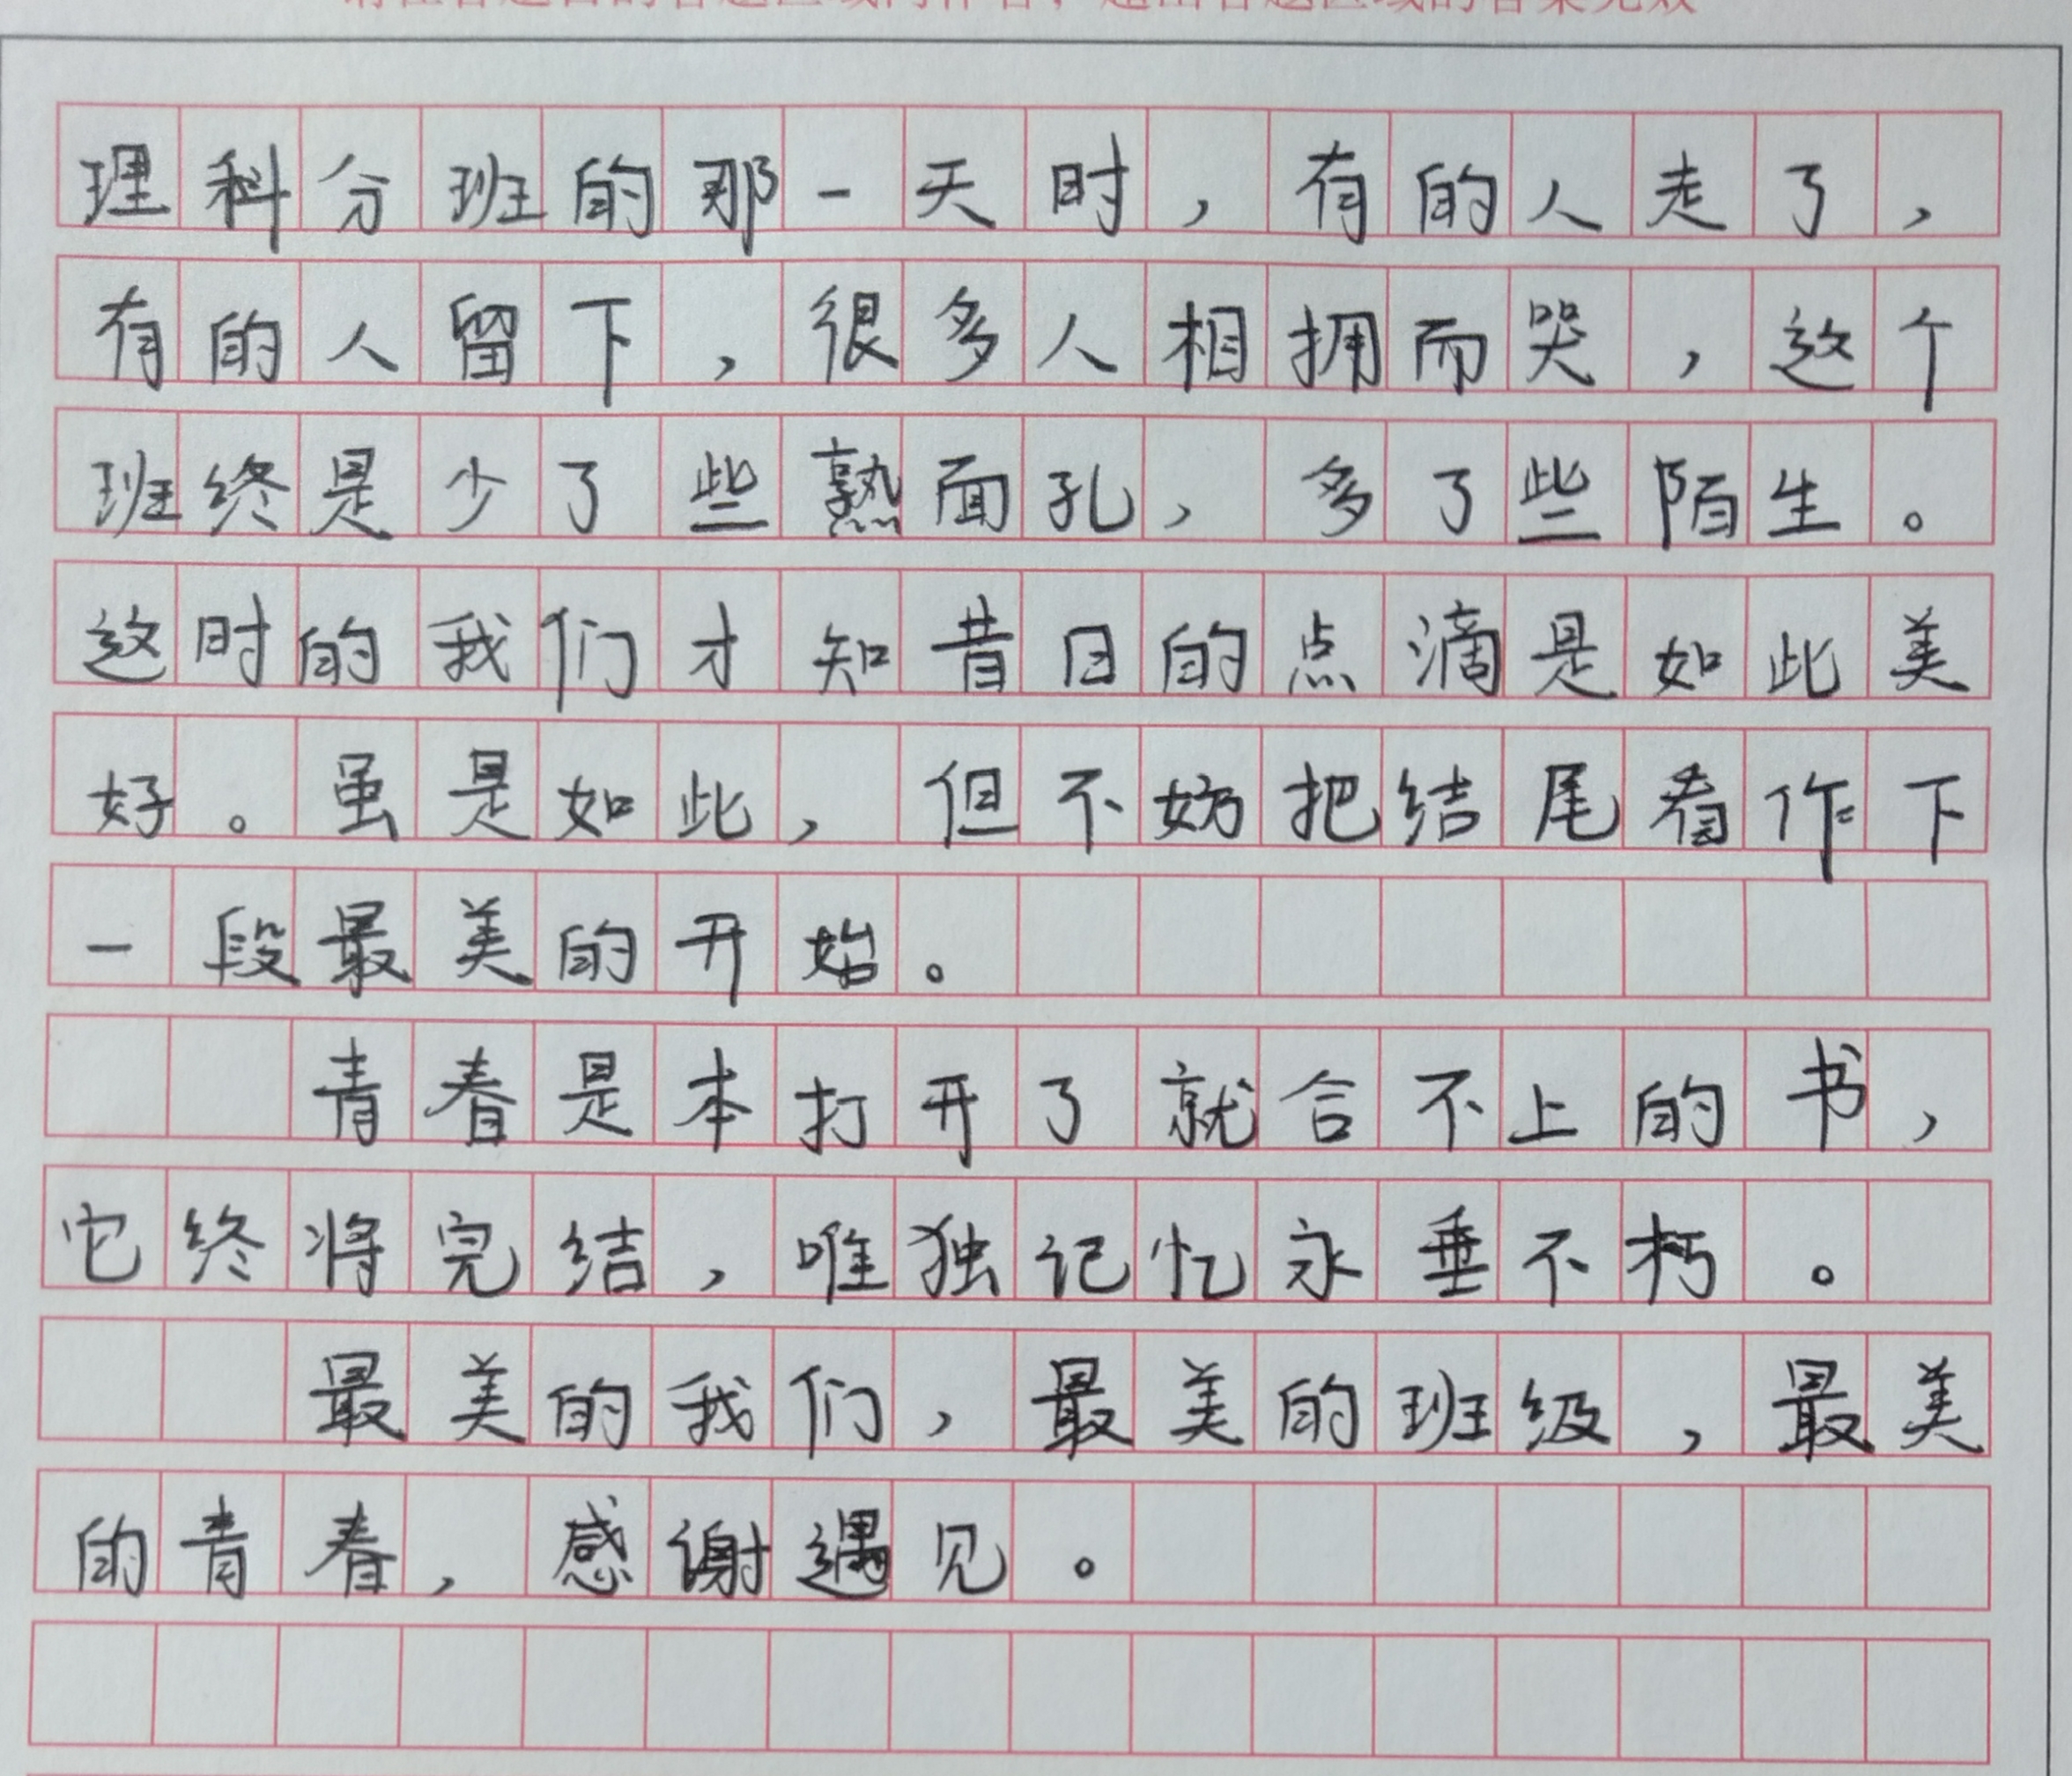 理科分班的那一天时，有的人走了，
有的人留下，很多人相拥而哭，这个
班终是少了些熟面孔，多了些陌生。
这时的我们才知昔日的点滴是如此美
好。虽是如此，但不妨把结尾看作下
一段最美的开始。
青春是本打开了就合不上的书，
它终将完结，唯独记忆永垂不朽。
最美的我们，最美的班级，最美
的青春，感谢遇见。